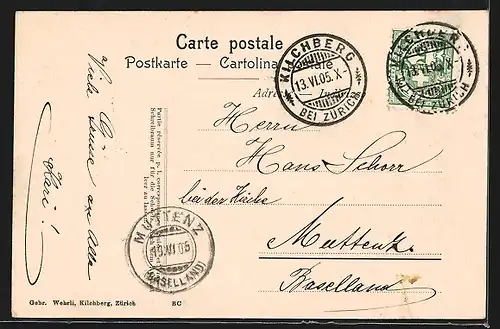 Carte postale
Postkarte — Cartolina postale
KILCHBERG
13.VI.05.X-
BEI ZÜRICH
KILCHBERG
13.VI.05.X-
BEI ZÜRICH
Herrn
Hans Schorr
bei der Kirche
Muttenz
Baselland
Viele Grüsse an Alle
Partie réservée p. l. correspond
MUTTENZ
13.VI.05
(BASELLAND)
Gebr. Wehrli, Kilchberg, Zürich